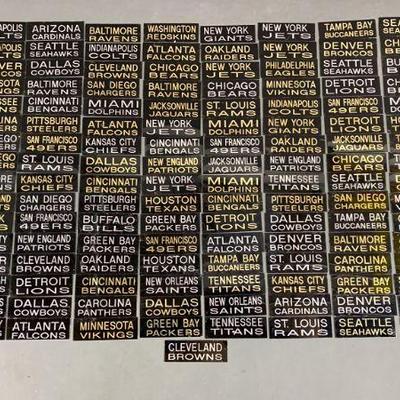 ARIZONA
CARDINALS
BALTIMORE
RAVENS
WASHINGTON
REDSKINS
NEW YORK
GIANTS
NEW YORK
JETS
TAMPA BAY
BUCCANEERS
SEATTLE
SEAHAWKS
INDIANAPOLIS
COLTS
ATLANTA
FALCONS
OAKLAND
RAIDERS
NEW YORK
JETS
DENVER
BRONCOS
DALLAS
COWBOYS
CLEVELAND
BROWNS
CHICAGO
BEARS
NEW YORK
JETS
PHILADELPHIA
EAGLES
SEATTLE
SEAHAWKS
BALTIMORE
RAVENS
SAN DIEGO
CHARGERS
BALTIMORE
RAVENS
CHICAGO
BEARS
MINNESOTA
VIKINGS
DETROIT
LIONS
CINCINNATI
BENGALS
MIAMI
DOLPHINS
JACKSONVILLE
JAGUARS
ST. LOUIS
RAMS
INDIANAPOLIS
COLTS
SAN FRANCISCO
49ERS
PITTSBURGH
STEELERS
ATLANTA
FALCONS
NEW YORK
JETS
MIAMI
DOLPHINS
NEW YORK
GIANTS
DETROIT
LIONS
SAN FRANCISCO
49ERS
KANSAS CITY
CHIEFS
CINCINNATI
BENGALS
SAN FRANCISCO
49ERS
OAKLAND
RAIDERS
JACKSONVILLE
JAGUARS
ST. LOUIS
RAMS
DALLAS
COWBOYS
NEW ENGLAND
PATRIOTS
JACKSONVILLE
JAGUARS
DALLAS
COWBOYS
CHICAGO
BEARS
KANSAS CITY
CHIEFS
CINCINNATI
BENGALS
NEW YORK
JETS
CINCINNATI
BENGALS
TENNESSEE
TITANS
SEATTLE
SEAHAWKS
SAN DIEGO
CHARGERS
PITTSBURGH
STEELERS
HOUSTON
TEXANS
CINCINNATI
BENGALS
PITTSBURGH
STEELERS
SAN DIEGO
CHARGERS
SAN FRANCISCO
49ERS
BUFFALO
BILLS
GREEN BAY
PACKERS
DETROIT
LIONS
DALLAS
COWBOYS
TAMPA BAY
BUCCANEERS
NEW ENGLAND
PATRIOTS
GREEN BAY
PACKERS
SAN FRANCISCO
49ERS
ATLANTA
FALCONS
DENVER
BRONCOS
BALTIMORE
RAVENS
CLEVELAND
BROWNS
OAKLAND
RAIDERS
HOUSTON
TEXANS
TAMPA BAY
BUCCANEERS
ST. LOUIS
RAMS
CAROLINA
PANTHERS
DETROIT
LIONS
CINCINNATI
BENGALS
NEW ORLEANS
SAINTS
TENNESSEE
TITANS
KANSAS CITY
CHIEFS
GREEN BAY
PACKERS
DALLAS
COWBOYS
CAROLINA
PANTHERS
DALLAS
COWBOYS
NEW ORLEANS
SAINTS
ARIZONA
CARDINALS
DENVER
BRONCOS
ATLANTA
FALCONS
MINNESOTA
VIKINGS
GREEN BAY
PACKERS
TENNESSEE
TITANS
ST. LOUIS
RAMS
SEATTLE
SEAHAWKS
CLEVELAND
BROWNS